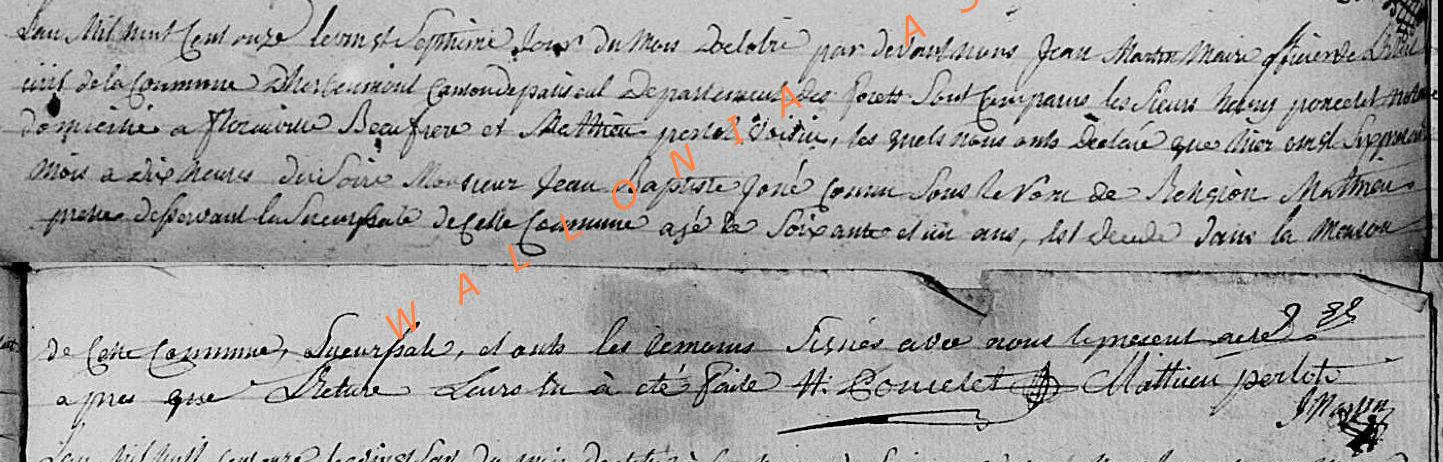 L'an Mil huit Cent onze le vingt Septieme Jour du Mois D'octobre par devant nous Jean Martin Maire officier de L'Etat
civil de la Commune D'herbeumont Canton de paliseul Departement des forets Sont Comparus les Sieurs henry poncelet
domicilié a florenville Beaufrere et Mathieu perlot Voisin, les quels nous onts Declaré que hier vingt Six present
mois a dix heures du Soire Monsieur Jean Baptiste José Connu Sous le Nom de Religion Mathieu
pretre desservant la Sucursale de Cette Commune agé de Soixante et un ans, est decedé dans la Maison
de Cette Commune, Sucursale, et onts les temoins Signés avec nous le present acte
apres que Lecture Leurs en à eté faite H. Poncelet Mathieu perlot
J Martin
WALLONIA AS